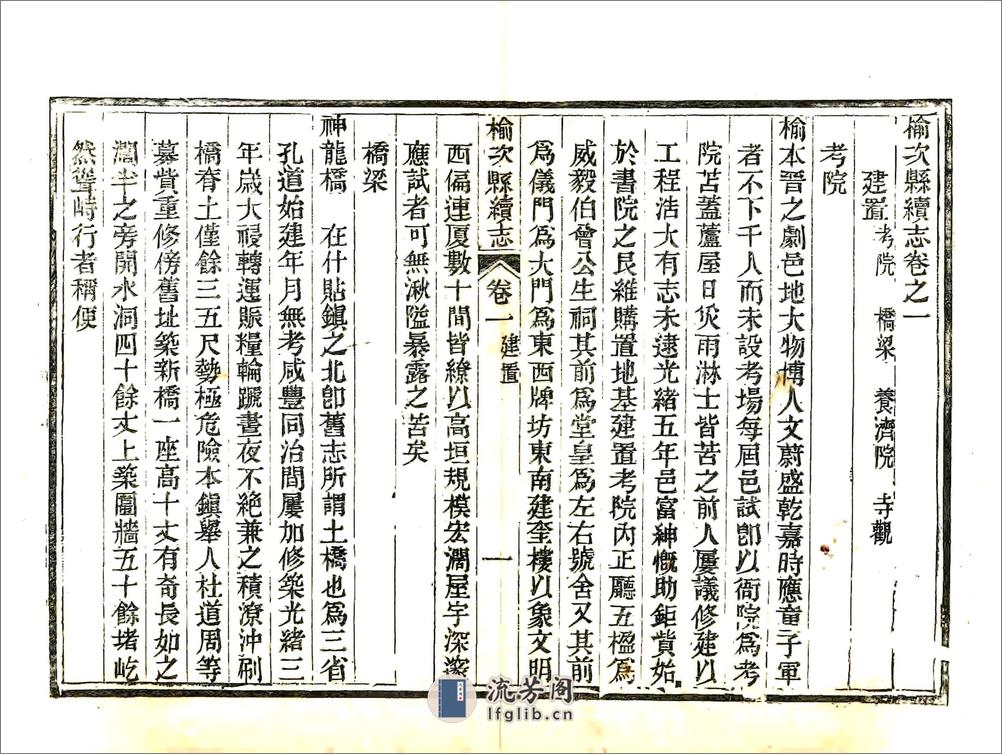 榆次縣續志卷之一
建置 考院 橋梁 養濟院 寺觀
考院
榆本晉之劇邑地大物博人文蔚盛乾嘉時應童子軍
者不下千人而未設考場每屆邑試卽以衙院爲考
院苫蓋蘆屋日炙雨淋士皆苦之前人屢議修建以
工程浩大有志未逮光緒五年邑富紳慨助鉅貲始
於書院之艮維購置地基建置考院內正廳五楹爲
威毅伯曾公生祠其前爲堂皇爲左右號舍又其前
爲儀門爲大門爲東西牌坊東南建奎樓以象文明
榆次縣續志 卷一 建置 一
西偏連厦數十間皆繚以高垣規模宏濶屋宇深邃
應試者可無湫隘暴露之苦矣
橋梁
神龍橋 在什貼鎭之北卽舊志所謂土橋也爲三省
孔道始建年月無考咸豐同治間屢加修築光緒三
年歲大祲轉運賑糧輪蹏晝夜不絕兼之積潦沖刷
橋脊土僅餘三五尺勢極危險本鎭舉人杜道周等
募貲重修傍舊址築新橋一座高十丈有奇長如之
濶半之旁開水洞四十餘丈上築圍牆五十餘堵屹
然聳峙行者稱便
流芳閣
lfglib.cn